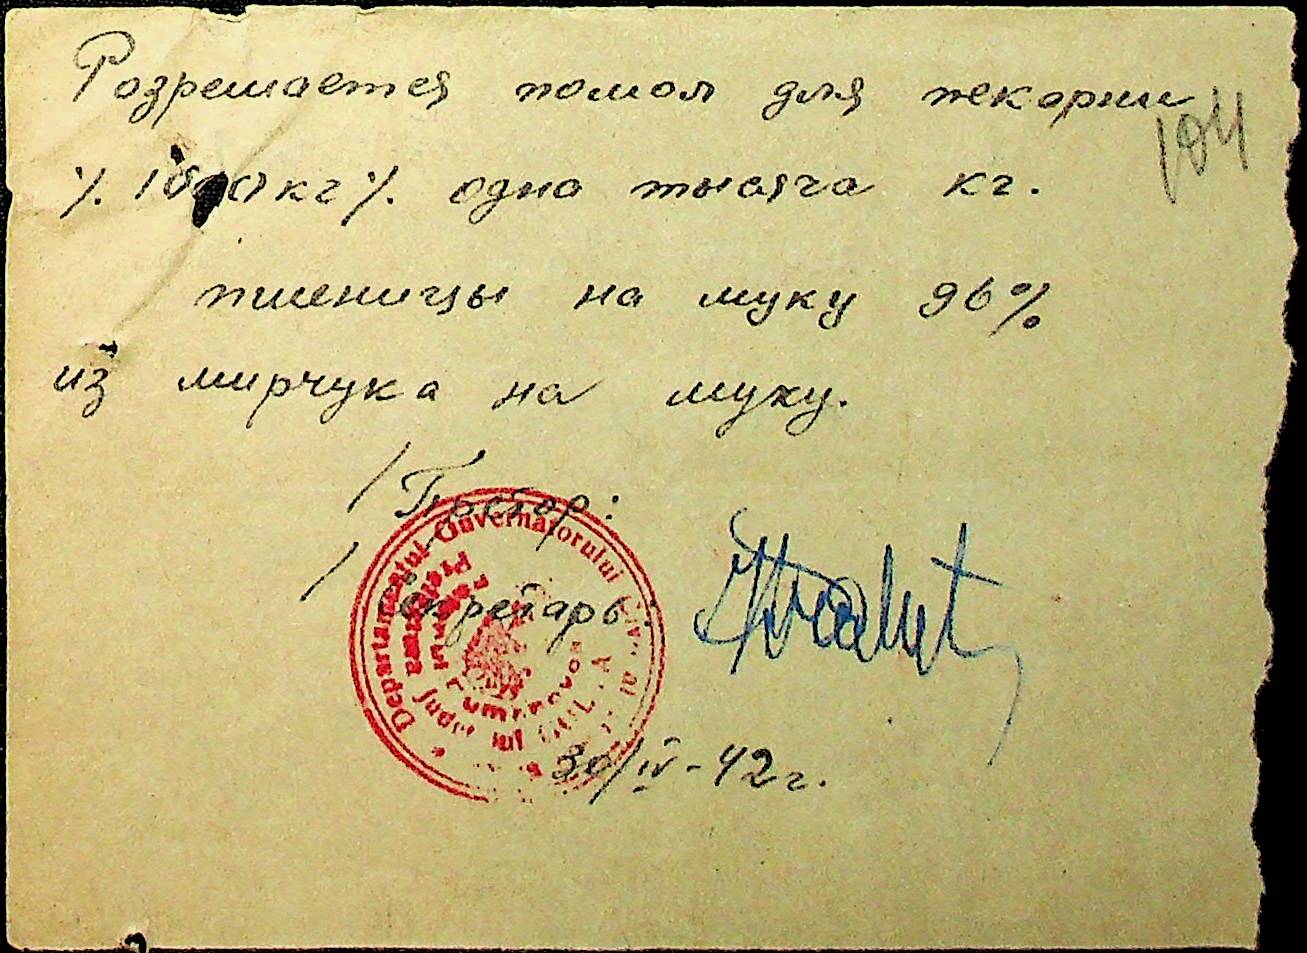 Розрешается помол для пекарни
104
٪ 1000 кг ٪ одна тысяча кг.
пшеницы на муку 96%
из мирчука на муку.
/ Претор:
/ Секретарь:
Departamentul Guvernatorului
Prefectura
Judeţ lui
30/IV-42 г.